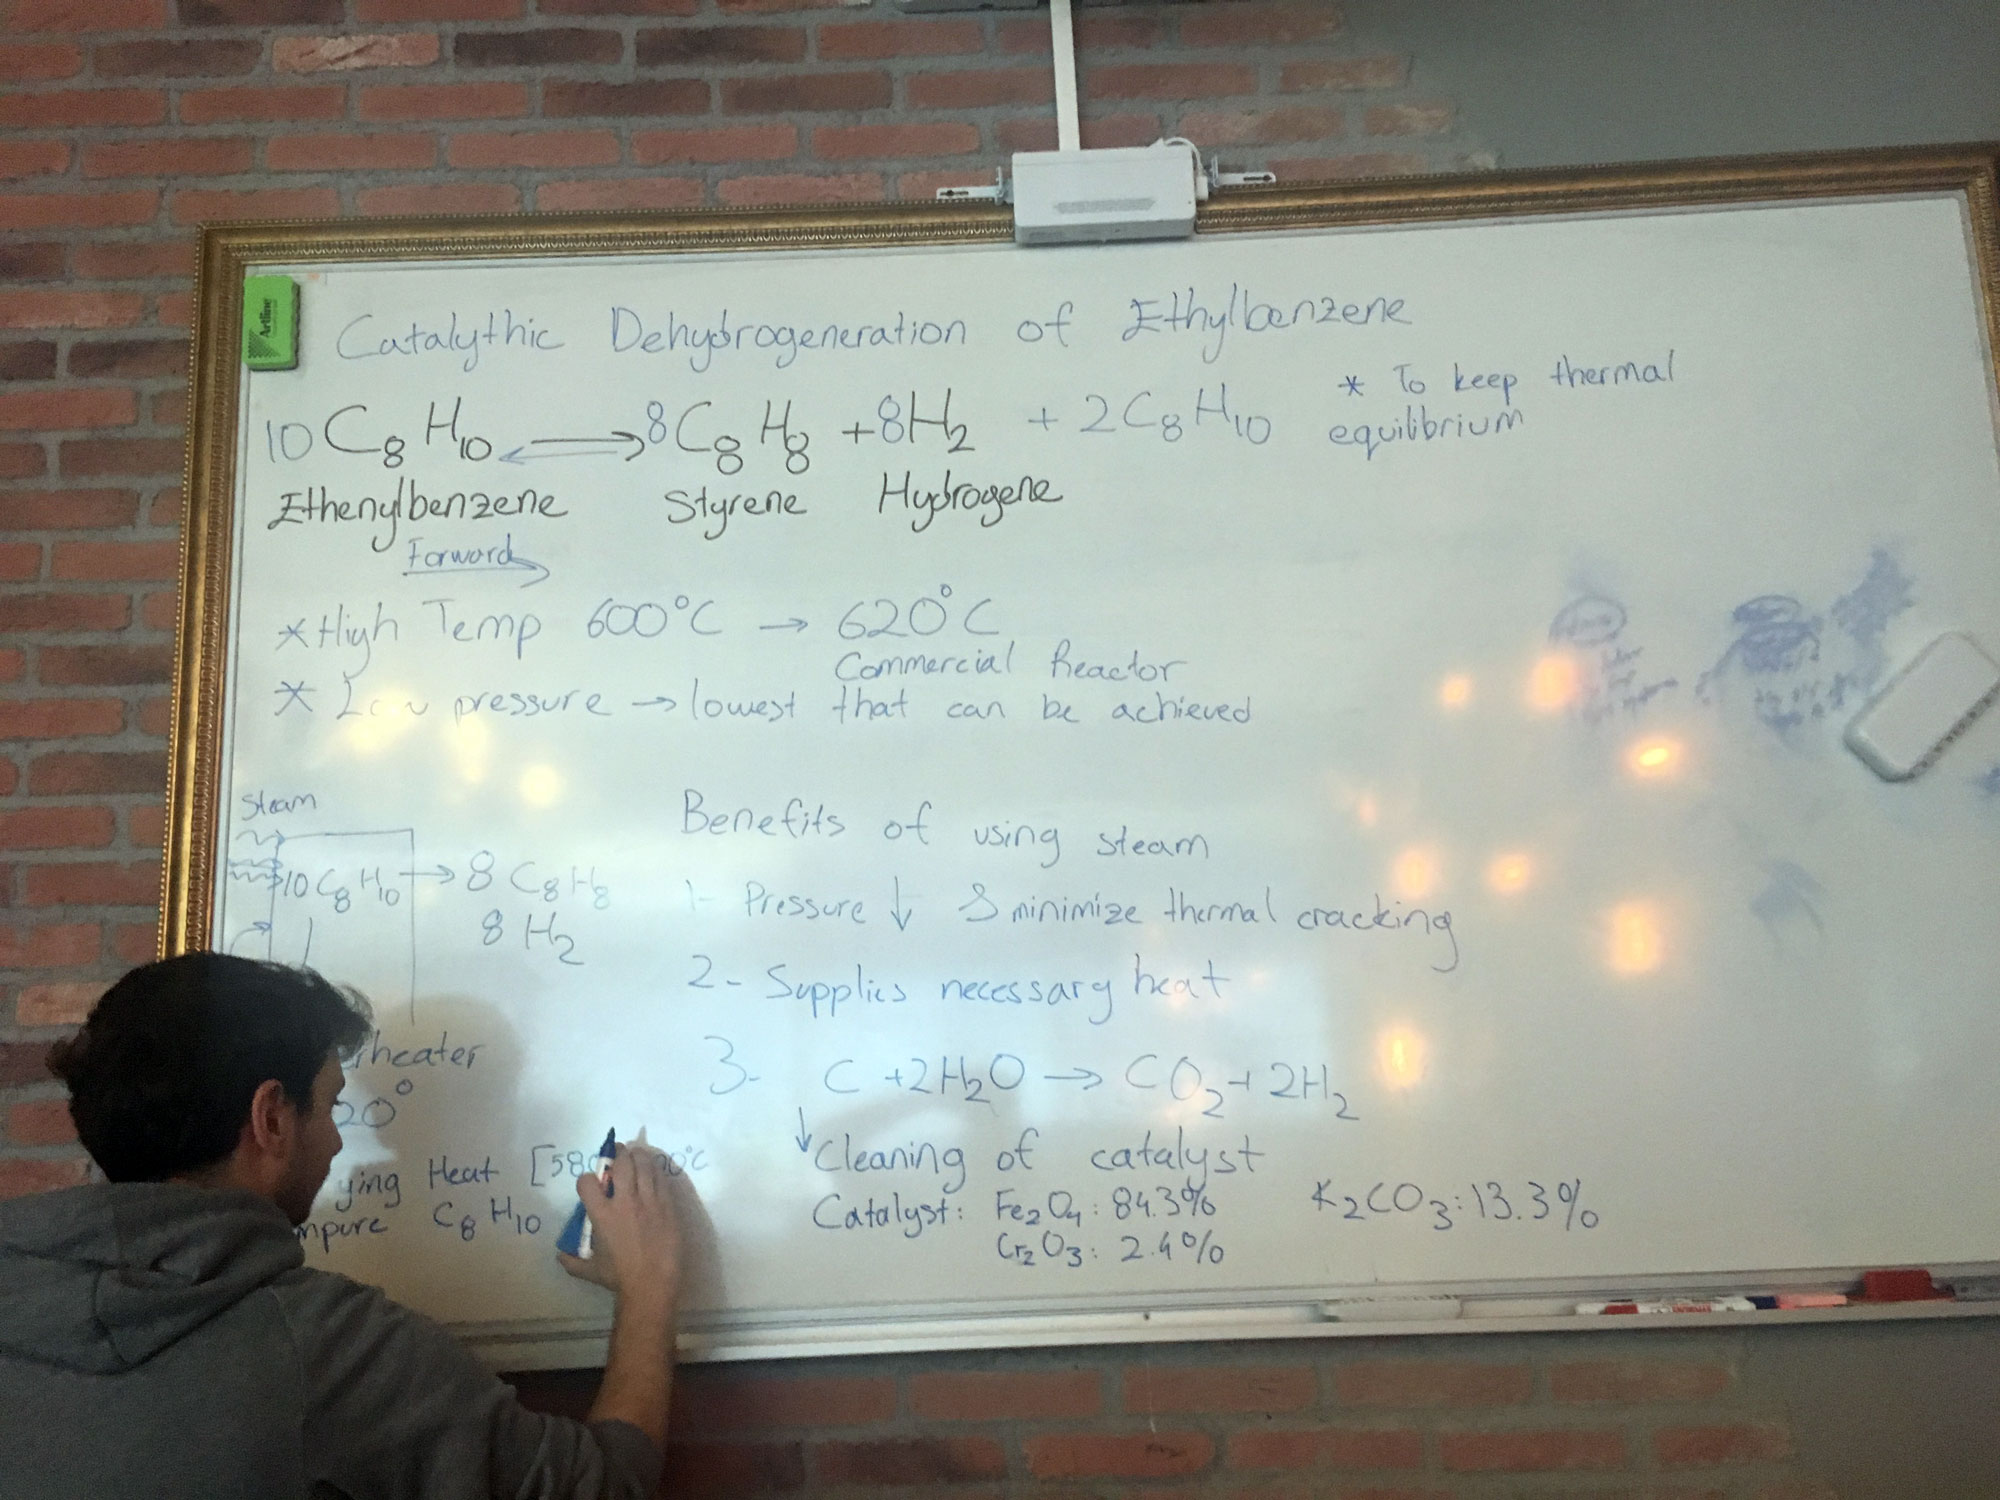 Artline
Catalythic Dehydrogeneration of Ethylbenzene
10 C8H10 ⇌ 8C8H8 + 8H2 + 2C8H10
* To keep thermal
equilibrium
Ethenylbenzene Styrene Hydrogene
Forward
* High Temp 600°C → 620°C
Commercial Reactor
* Low pressure → lowest that can be achieved
Steam
10 C8H10 → 8 C8H8
8 H2
Benefits of using steam
1- Pressure ↓ & minimize thermal cracking
2- Supplies necessary heat
3- C + 2H2O → CO2 + 2H2
↓ Cleaning of catalyst
Catalyst: Fe2O4: 84.3% K2CO3: 13.3%
Cr2O3: 2.4%
rheater
20°
ying Heat [58 0°C
mpure C8H10